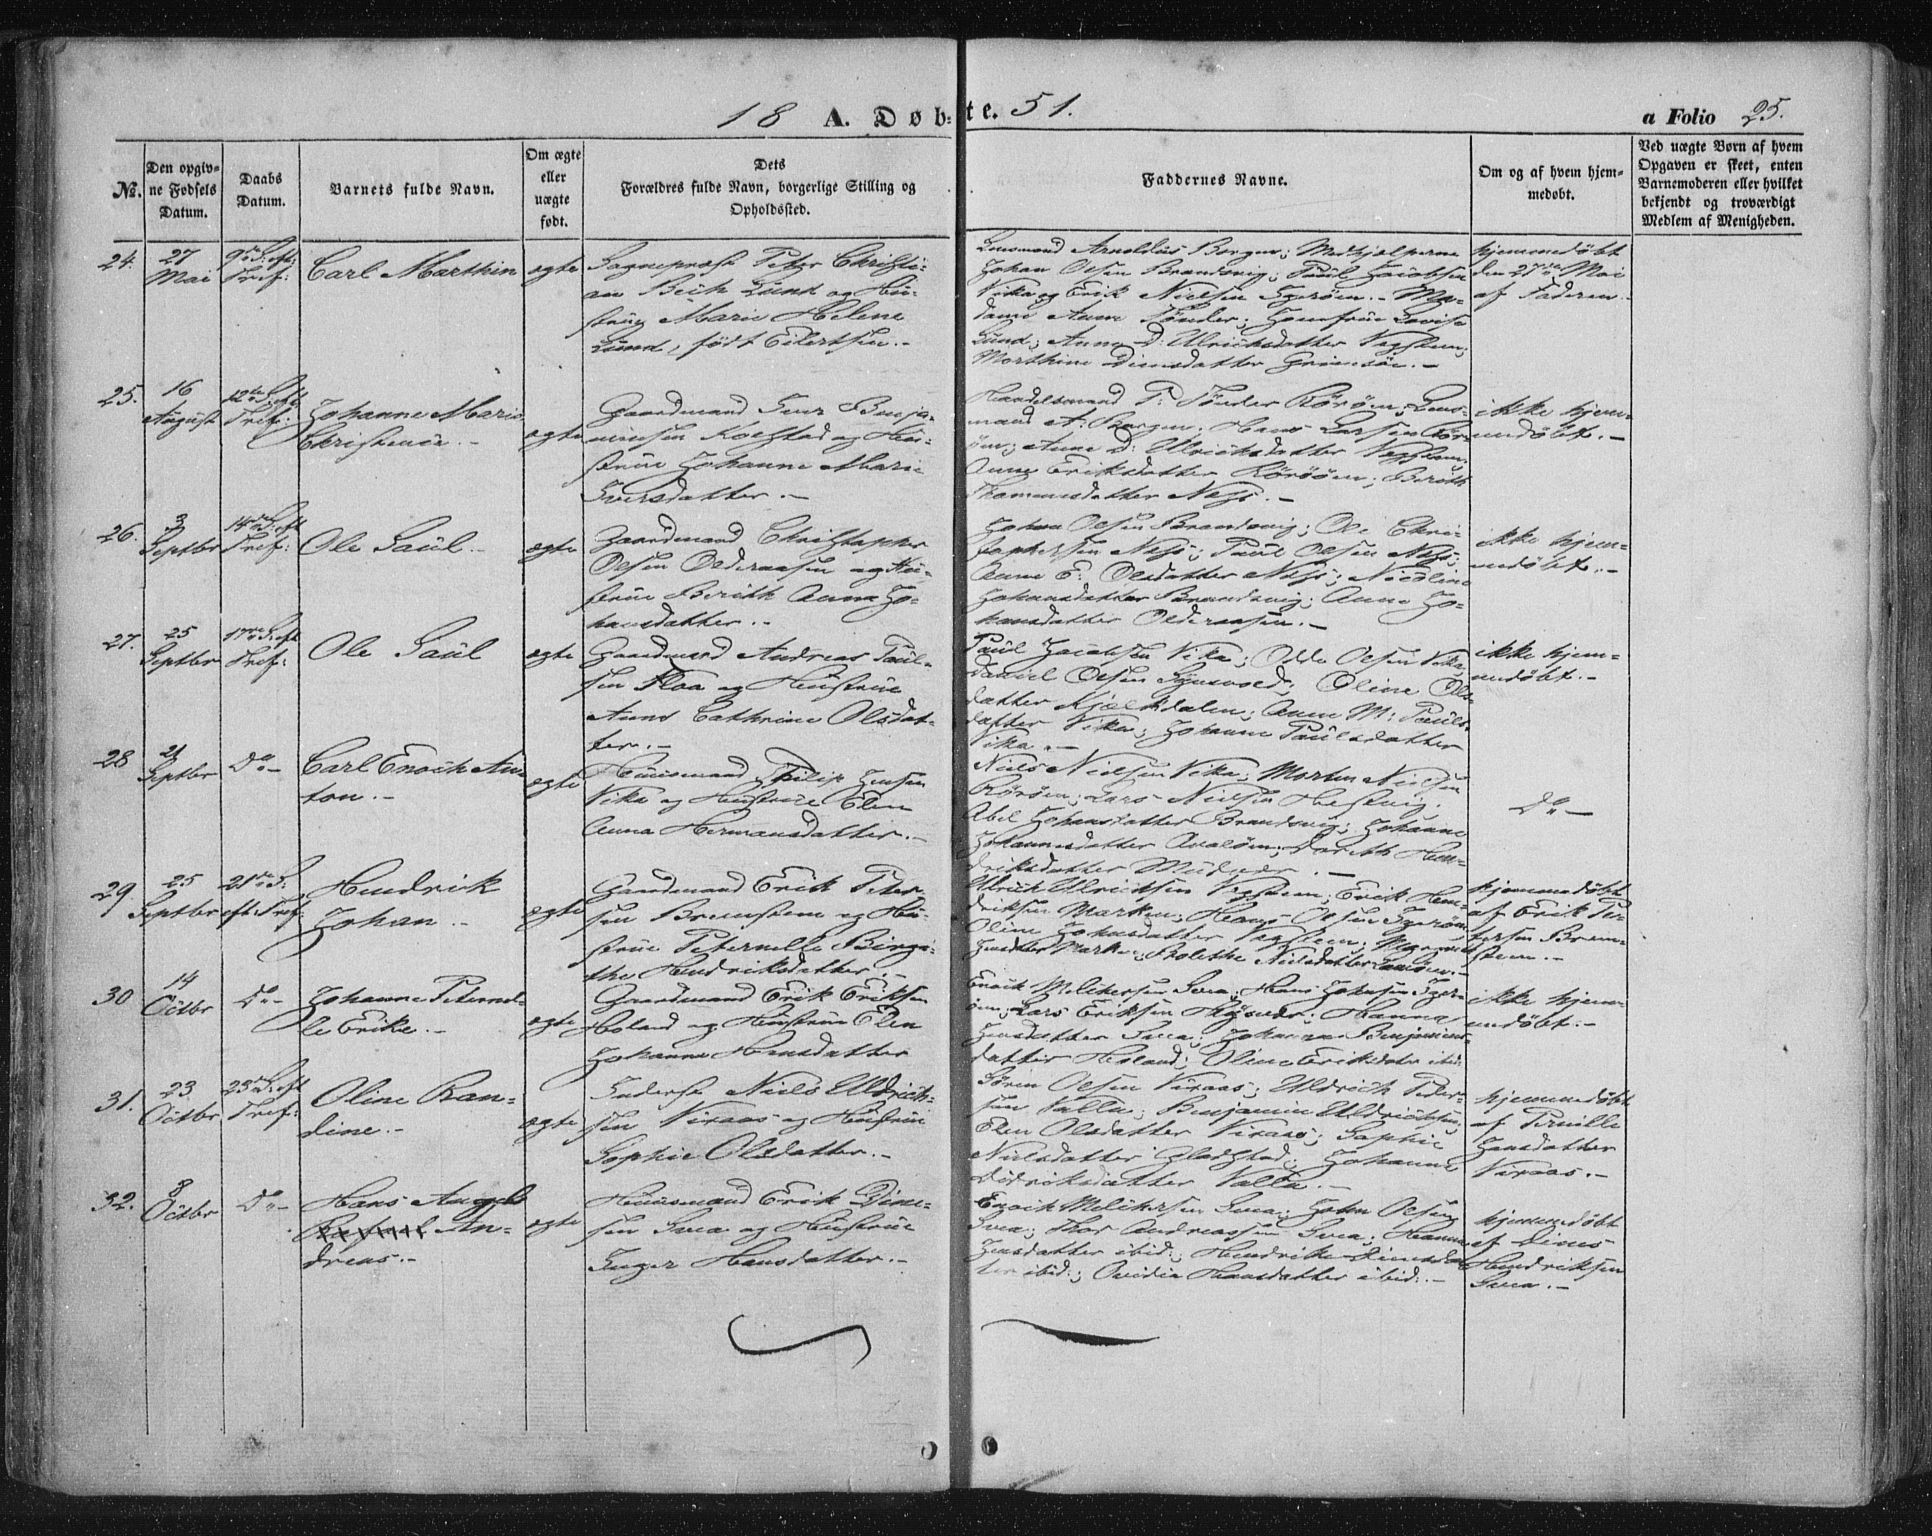 18 A. Døbte. 51.
a Folio 25.
No.
Den opgivne Fødsels Datum.
Daabs Datum.
Barnets fulde Navn.
Om ægte eller uægte født.
Dets Forældres fulde Navn, borgerlige Stilling og Opholdssted.
Faddernes Navne.
Om og af hvem hjemmedøbt.
Ved uægte Børn af hvem Opgaven er skeet, enten Barnemoderen eller hvilket bekjendt og troværdigt Medlem af Menigheden.
24.
27 Mai
Carl Marthin
ægte
Sognepræst Peter Christi-
an Bech Lund og Hu-
strue Marie Helene
Lund, født Eilertsen.-
Lensmand Arnoldus Borgen; Medhjelperne
Johan Olsen Brandsvig; Paul Jacobsen
Vika og Erik Nielsen - Ma-
dame Anne Tønder; Jomfrue Lovise
Lund; Anne D: Ulrichsdatter
hjemmedøbt
den 27de Mai
af Faderen.-
25.
16 August
12te S: eft Tref:
Johanne Marie
Christence.-
ægte
Gaardmand Benja-
minsen og Hu-
strue Johanne Marie
Iversdatter.-
Handelsmand P. Tønder Rørøen; Lens-
mand A: Borgen; Hans Larsen
Anne D: Ulrichsdatter
Anne Eriksdatter Rørøen; Berith
Næss.-
ikke hjem-
medøbt.-
26.
3 Septbr
Tref:
Ole Saul.-
ægte
Gaardmand Christopher
Olsen Olderaasen og Hu-
strue Berith Anna Jo-
hansdatter.-
Johan Olsen Brandsvig; Ole Chri-
stophersen Næss; Paul Olsen Næss;
Anne E: Olsdatter Næss; Nicoline
Johansdatter Brandsvig; Anne Jo-
hansdatter Olderaasen.-
ikke hjem-
medøbt.-
27.
25 Septbr
17de S: eft Tref:
Ole Saul
ægte
Gaardmand Andreas Paul-
sen Floa og Huustrue
Anne Cathrine Olsdat-
ter.-
Paul Jacobsen Vika; Odde Olsen Vika
Daniel Olsen; Oline Ols-
datter; Anne M: Pauls-
datter Vika; Johanne Paulsdatter
Vika.-
ikke hjem-
medøbt.-
28
21 Septbr
Do-
Carl Enoch An-
ton.-
ægte
Huusmand Philip Jensen
Vika og Huustrue Elen
Anna Hermansdatter.-
Niels Nielsen Vika; Morten Nielsen
Rørøen; Lars Nielsen Hestvig;
Abel Johansdatter Brandsvig; Johanne
Johannesdatter; Dorith Hen-
driksdatter
Do-
29
25 Septbr
21de S: eft: Tref:
Hendrick
Johan.-
ægte
Gaardmand Erik Peter-
sen Bremstein og Hu-
strue Peternelle Birgi-
the Hendriksdatter.-
Ulrich Ulrichsen; Erik Hen-
driksen Marken; Hans Olsen
Oline Johansdatter
hjemmedøbt
af Erik Pe-
tersen Brem-
steen.-
30
14 Octbr
Do-
Johanne Peternel-
le Erike.-
ægte
Gaardmand Erik Eriksen
Holand og Huustrue Elen
Johanna Hansdatter
Enoch Melchersen Svea; Hans Johnsen
Lars Eriksen; Hanna
Jensdatter Svea; Johanna Benjamins-
datter Holand; Oline Eriksdatter ibid:
ikke hjem-
medøbt.-
31.
23 Octbr
23de S: eft Tref:
Oline Ran-
dine.-
ægte
Inderst Niels Uldrich-
sen Viraas og Hustrue
Sophie Olsdatter.-
Søren Olsen Viraas; Uldrich Peder-
sen Valla; Benjamin Uldrichsen;
Elen Olsdatter Viraas; Sophie
Nielsdatter; Johanne
Didriksdatter Valla.-
hjemmedøbt
af Pernille
Jensdatter
Viraas.-
32.
8 Octbr
Do-
Hans Angel
An-
dreas.-
ægte
Huusmand Erik Dine-
sen Svea og Huustrue
Inger Hansdatter.-
Enoch Melchersen Svea; John Olsen
Svea; Thor Andreassen Svea; Hanna
Jensdatter ibid:; Hendrikke Dinesdat-
ter ibid:; Hansdatter ibid:.-
hjemmedøbt
af Dines
Hendriksen
Svea.-